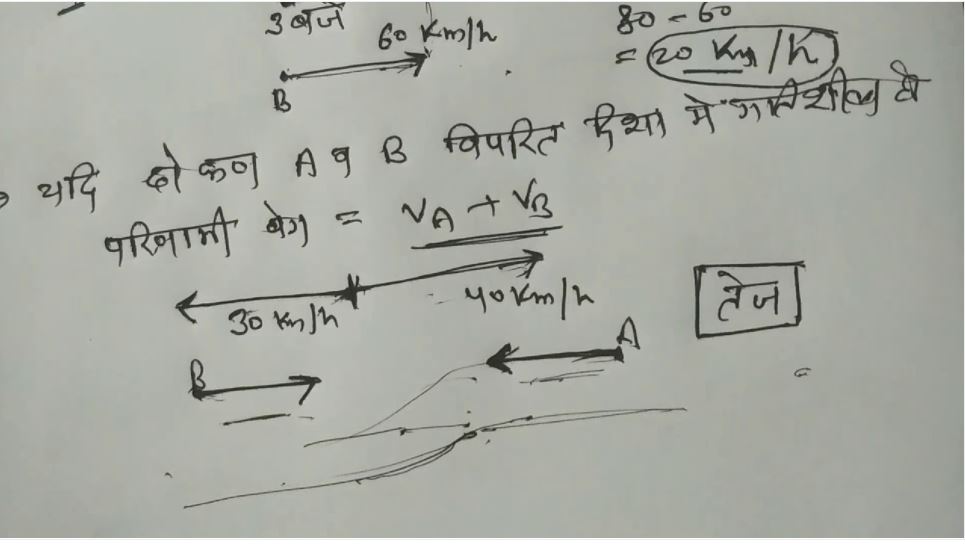 3 बजे
60 Km/h
80 - 60
= 20 Km/h
B
यदि दो कण A व B विपरित दिशा में गतिशील हो
परिणामी वेग = VA + VB
30 Km/h
40 Km/h
तेज
B
A